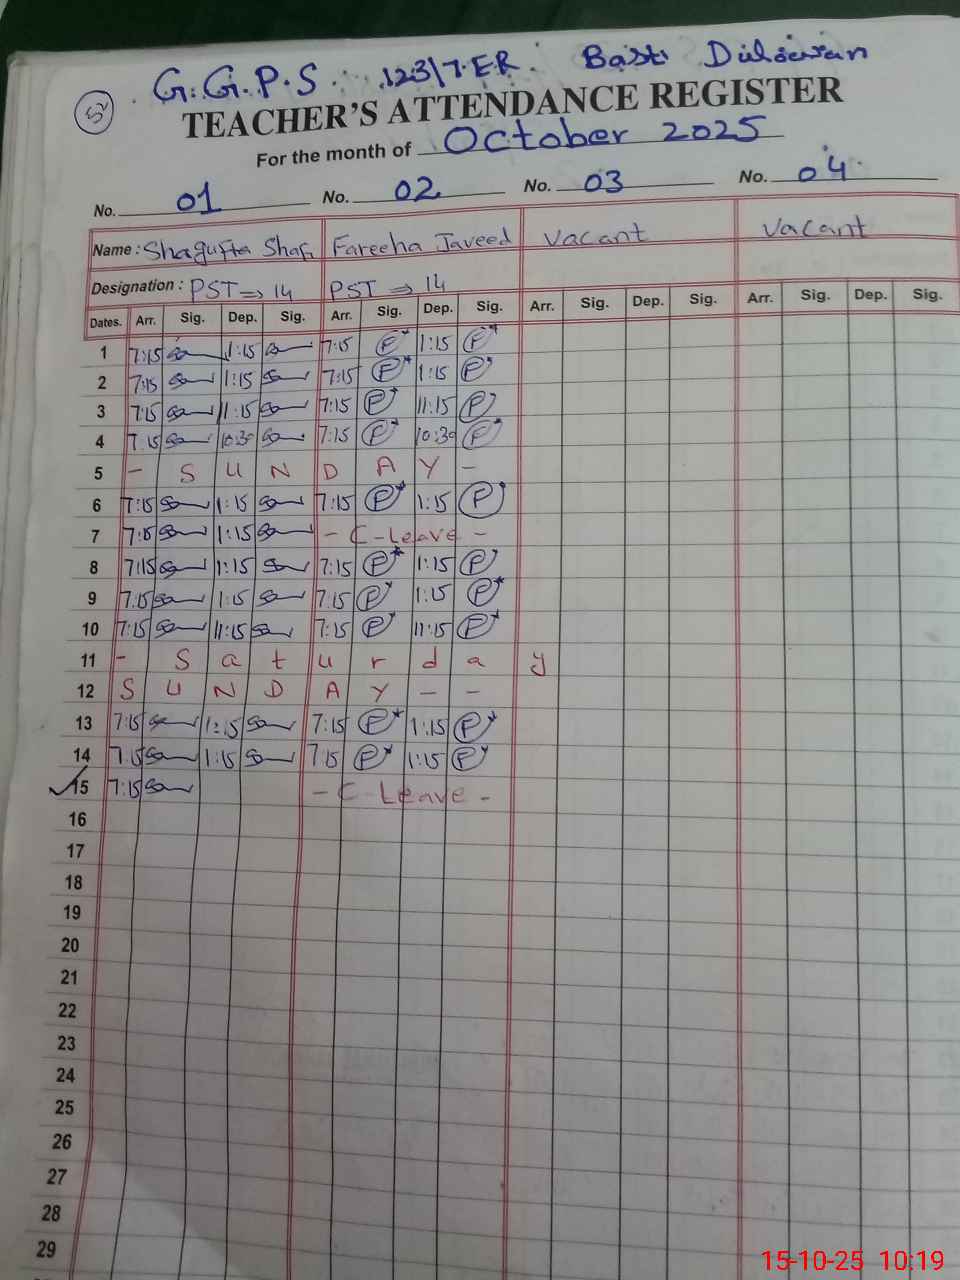 G.G.P.S. 123/7.ER. Basti
TEACHER'S ATTENDANCE REGISTER
For the month of October 2025
No. 01 No. 02 No. 03 No. 04
Name: Shagufta Fareeha Javeed Vacant Vacant
Designation: PST ⇒ 14 PST ⇒ 14
Dates. Arr. Sig. Dep. Sig. Arr. Sig. Dep. Sig. Arr. Sig. Dep. Sig. Arr. Sig. Dep. Sig.
1 7:15 1:15 7:15 1:15
2 7:15 1:15 7:15 1:15
3 7:15 11:15 7:15 11:15
4 7:15 10:30 7:15 10:30
5 - SUNDAY -
6 7:15 1:15 7:15 1:15
7 7:15 1:15 - C-Leave -
8 7:15 1:15 7:15 1:15
9 7:15 1:15 7:15 1:15
10 7:15 11:15 7:15 11:15
11 - Saturday
12 SUNDAY - -
13 7:15 1:15 7:15 1:15
14 7:15 1:15 7:15 1:15
15 7:15 - C-Leave -
16
17
18
19
20
21
22
23
24
25
26
27
28
29
15-10-25 10:19